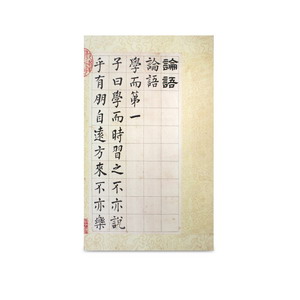 論語
論語
學而第一
子曰學而時習之不亦說
乎有朋自遠方來不亦樂